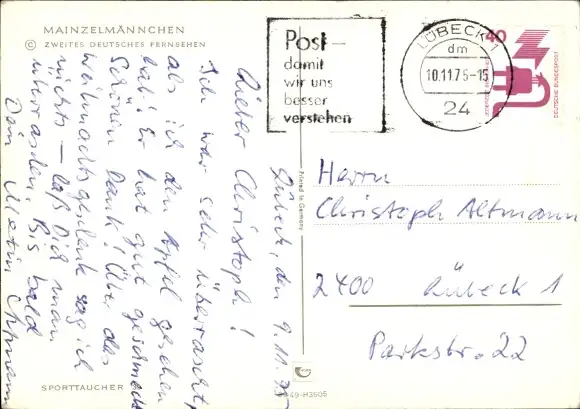 MAINZELMÄNNCHEN
© ZWEITES DEUTSCHES FERNSEHEN
Lübeck, den 9.11.75
Lieber Christoph!
Ich war sehr überrascht,
als ich den Apfel gesehen
hab'! Er hat gut geschmeckt
Schönen Dank! Über das
Weihnachtsgeschenk sag ich
nichts – laß Dich man
überraschen. Bis bald
Dein
SPORTTAUCHER
Post –
damit
wir uns
besser
verstehen
LÜBECK 1
dm
10.11.75-15
24
40
DEUTSCHE BUNDESPOST
Printed in Germany
Herrn
Christoph Altmann
2400 Lübeck 1
Parkstr. 22
49-H3605